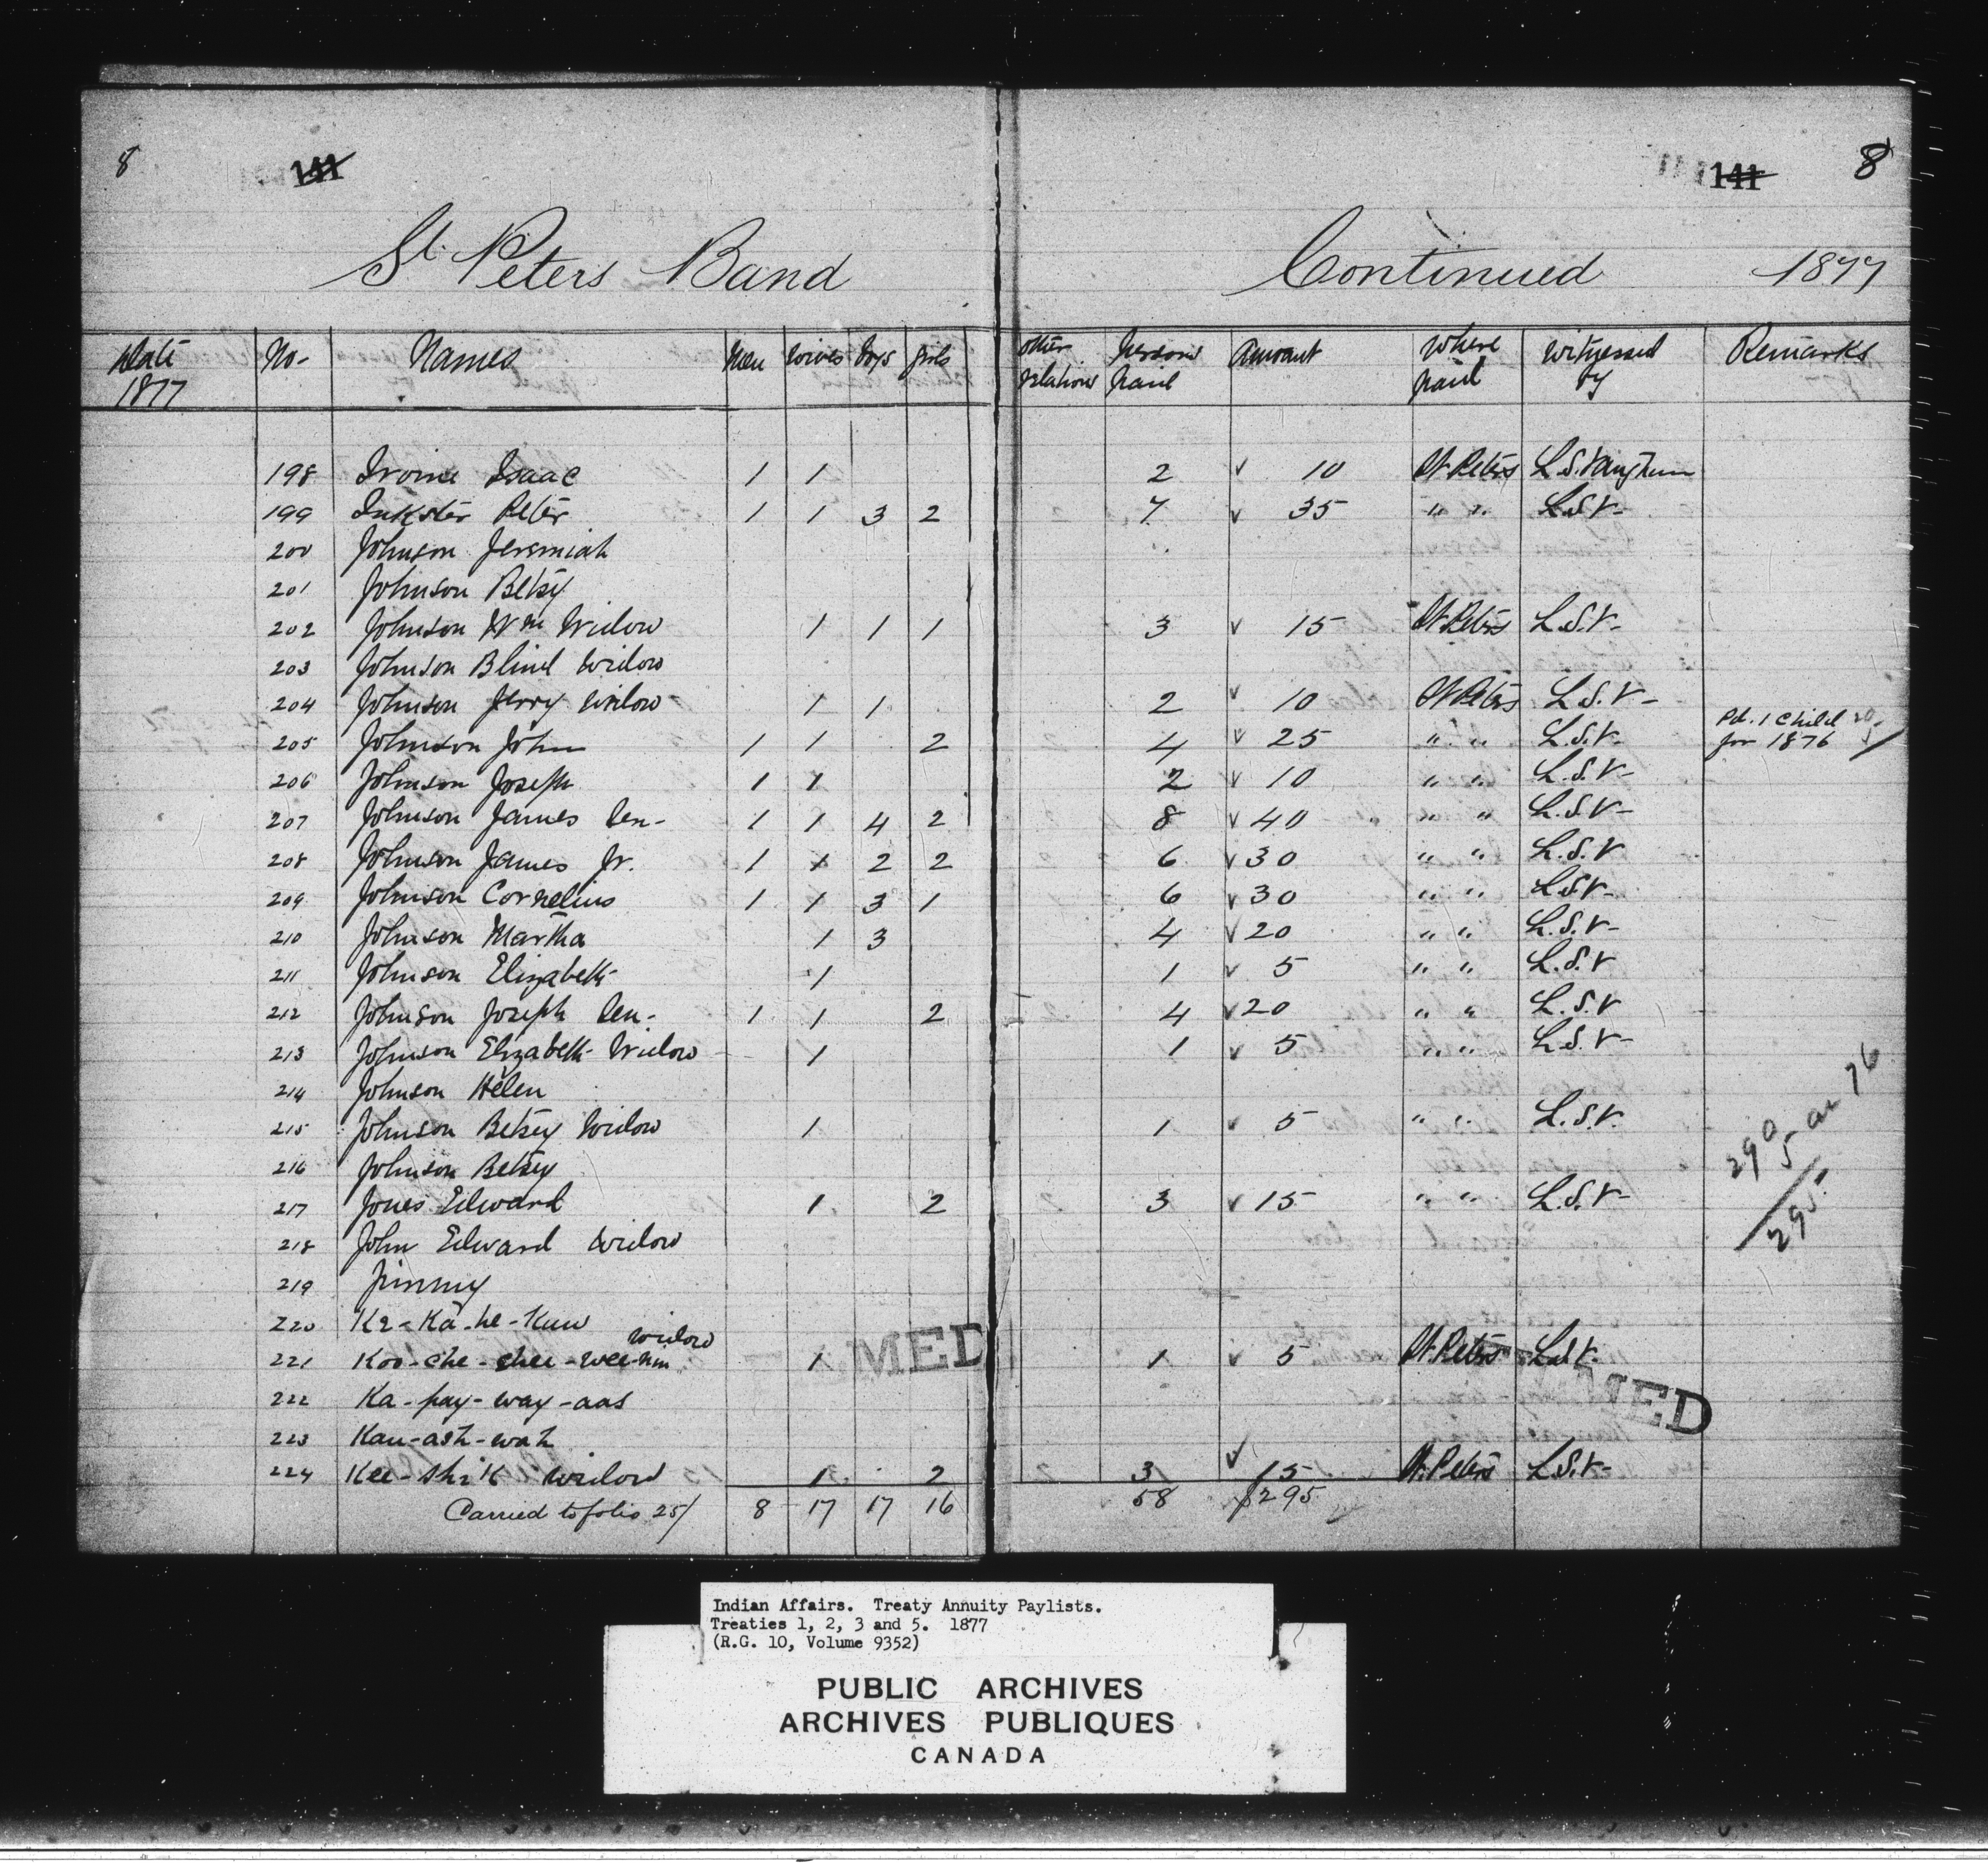 8 141 141 8
St. Peters Band Continued 1877
Date 1877 No- Names Men Wives Boys Girls other relations Persons paid Amount Where paid Witnessed by Remarks
198 Irvine Isaac 1 1 2 ✓ 10 St. Peters L.S. Vaughan
199 Inkster Peter 1 1 3 2 7 ✓ 35 " " L.S.V-
200 Johnson Jeremiah
201 Johnson Betsy
202 Johnson Wm Widow 1 1 1 3 ✓ 15 St. Peters L.S.V-
203 Johnson Blind Widow
204 Johnson Jerry Widow 1 1 2 ✓ 10 St. Peters L.S.V-
205 Johnson John 1 1 2 4 ✓ 25 " " L.S.V- Pd. 1 Child for 1876
206 Johnson Joseph 1 1 2 ✓ 10 " " L.S.V-
207 Johnson James Sen- 1 1 4 2 8 ✓ 40 " " L.S.V-
208 Johnson James Jr. 1 1 2 2 6 ✓ 30 " " L.S.V
209 Johnson Cornelius 1 1 3 1 6 ✓ 30 " " L.S.V-
210 Johnson Martha 1 3 4 ✓ 20 " " L.S.V-
211 Johnson Elizabeth 1 1 ✓ 5 " " L.S.V
212 Johnson Joseph Sen- 1 1 2 4 ✓ 20 " " L.S.V
213 Johnson Elizabeth Widow 1 1 ✓ 5 " " L.S.V-
214 Johnson Helen
215 Johnson Betsy Widow 1 1 ✓ 5 " " L.S.V.
216 Johnson Betsy
217 Jones Edward 1 2 3 ✓ 15 " " L.S.V-
290
5 ar 76
295
218 John Edward Widow
219 Jimmy
220 Ke-Ka-he-Kuw
221 Koo-che-chee-wee-nin widow 1 1 ✓ 5 St. Peters L.S.V-
222 Ka-pay-way-aas
223 Kau-ash-wah
224 Kee-shik Widow 1 2 3 ✓ 15 St. Peters L.S.V-
Carried to folio 25/ 8 17 17 16 58 $295
MED
MED
Indian Affairs. Treaty Annuity Paylists.
Treaties 1, 2, 3 and 5. 1877
(R.G. 10, Volume 9352)
PUBLIC ARCHIVES
ARCHIVES PUBLIQUES
CANADA